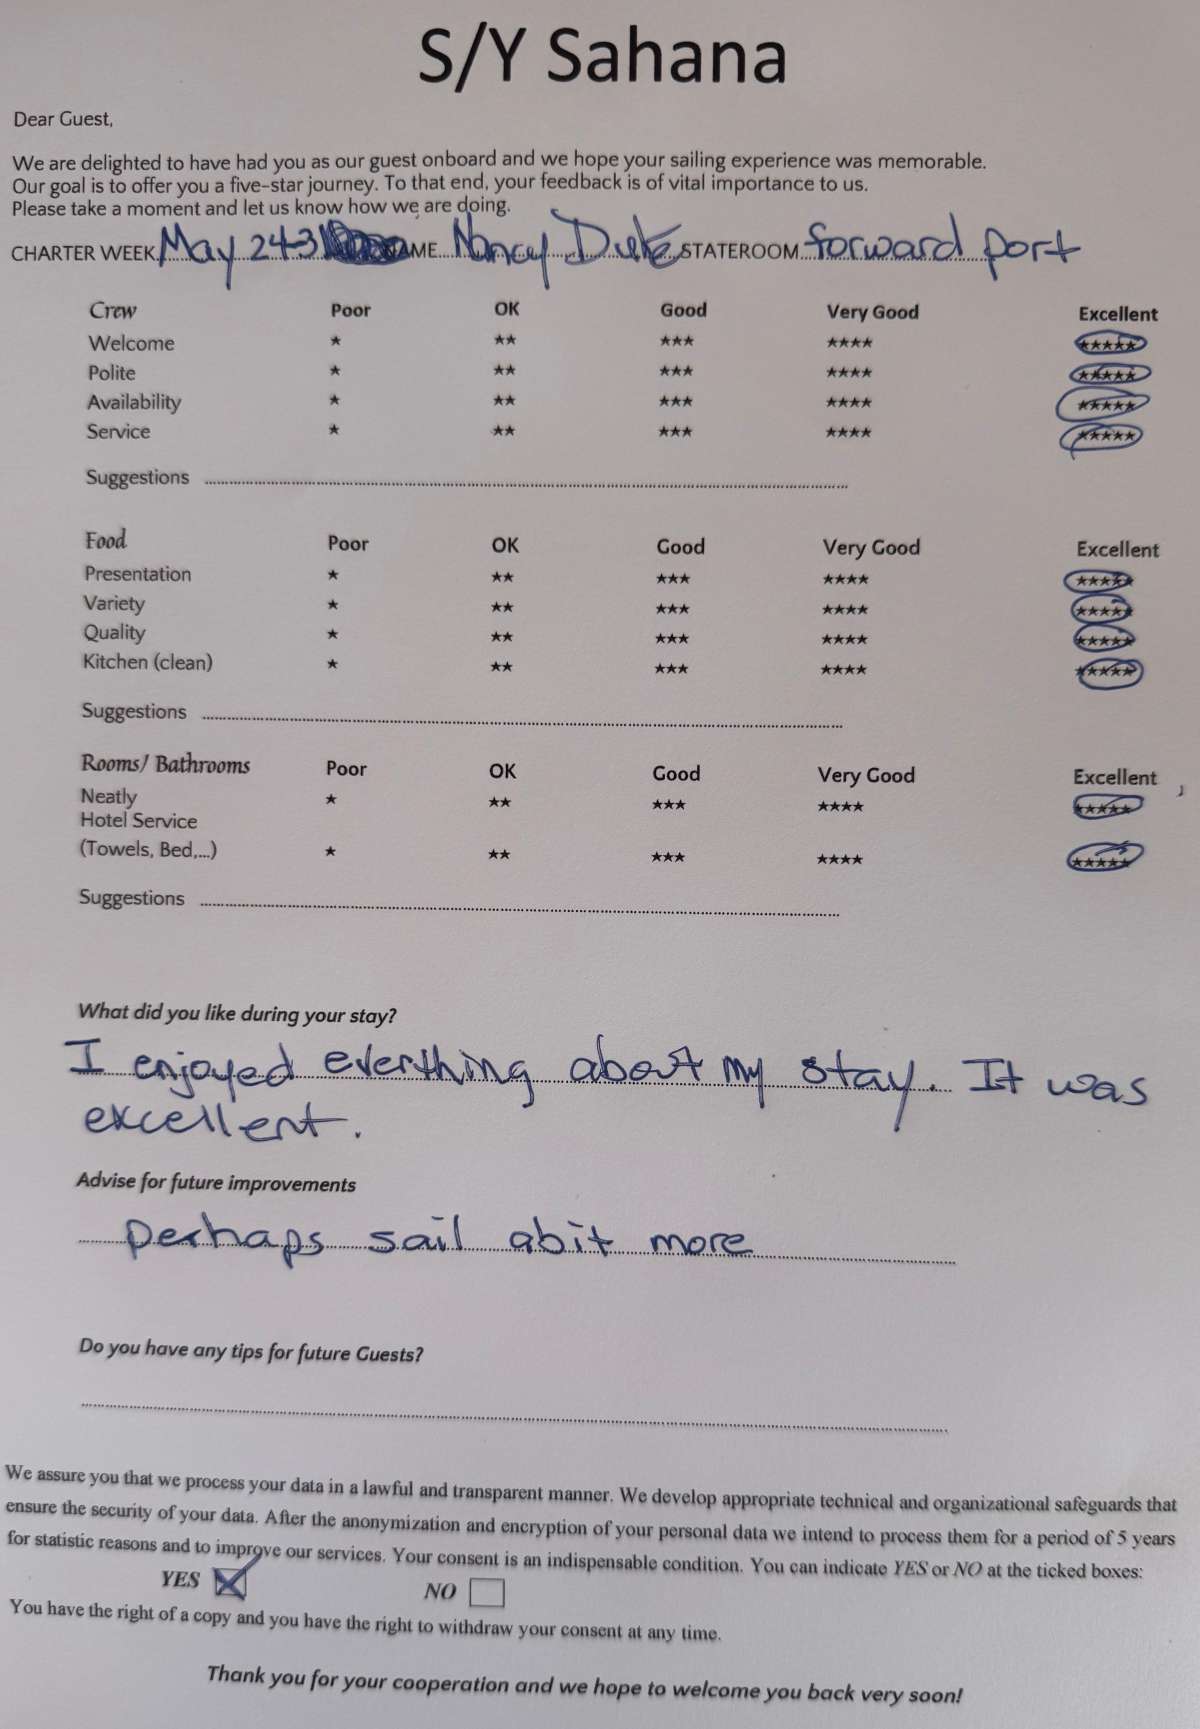 S/Y Sahana
Dear Guest,
We are delighted to have had you as our guest onboard and we hope your sailing experience was memorable.
Our goal is to offer you a five-star journey. To that end, your feedback is of vital importance to us.
Please take a moment and let us know how we are doing.
CHARTER WEEK May 24-31 NAME Nancy STATEROOM forward port
Crew Poor OK Good Very Good Excellent
Welcome ★ ★★ ★★★ ★★★★ ★★★★★
Polite ★ ★★ ★★★ ★★★★ ★★★★★
Availability ★ ★★ ★★★ ★★★★ ★★★★★
Service ★ ★★ ★★★ ★★★★ ★★★★★
Suggestions
Food Poor OK Good Very Good Excellent
Presentation ★ ★★ ★★★ ★★★★ ★★★★★
Variety ★ ★★ ★★★ ★★★★ ★★★★★
Quality ★ ★★ ★★★ ★★★★ ★★★★★
Kitchen (clean) ★ ★★ ★★★ ★★★★ ★★★★★
Suggestions
Rooms/ Bathrooms Poor OK Good Very Good Excellent
Neatly ★ ★★ ★★★ ★★★★ ★★★★★
Hotel Service
(Towels, Bed,...) ★ ★★ ★★★ ★★★★ ★★★★★
Suggestions
What did you like during your stay?
I enjoyed everthing about my stay. It was
excellent.
Advise for future improvements
perhaps sail abit more
Do you have any tips for future Guests?
We assure you that we process your data in a lawful and transparent manner. We develop appropriate technical and organizational safeguards that
ensure the security of your data. After the anonymization and encryption of your personal data we intend to process them for a period of 5 years
for statistic reasons and to improve our services. Your consent is an indispensable condition. You can indicate YES or NO at the ticked boxes:
YES NO
You have the right of a copy and you have the right to withdraw your consent at any time.
Thank you for your cooperation and we hope to welcome you back very soon!